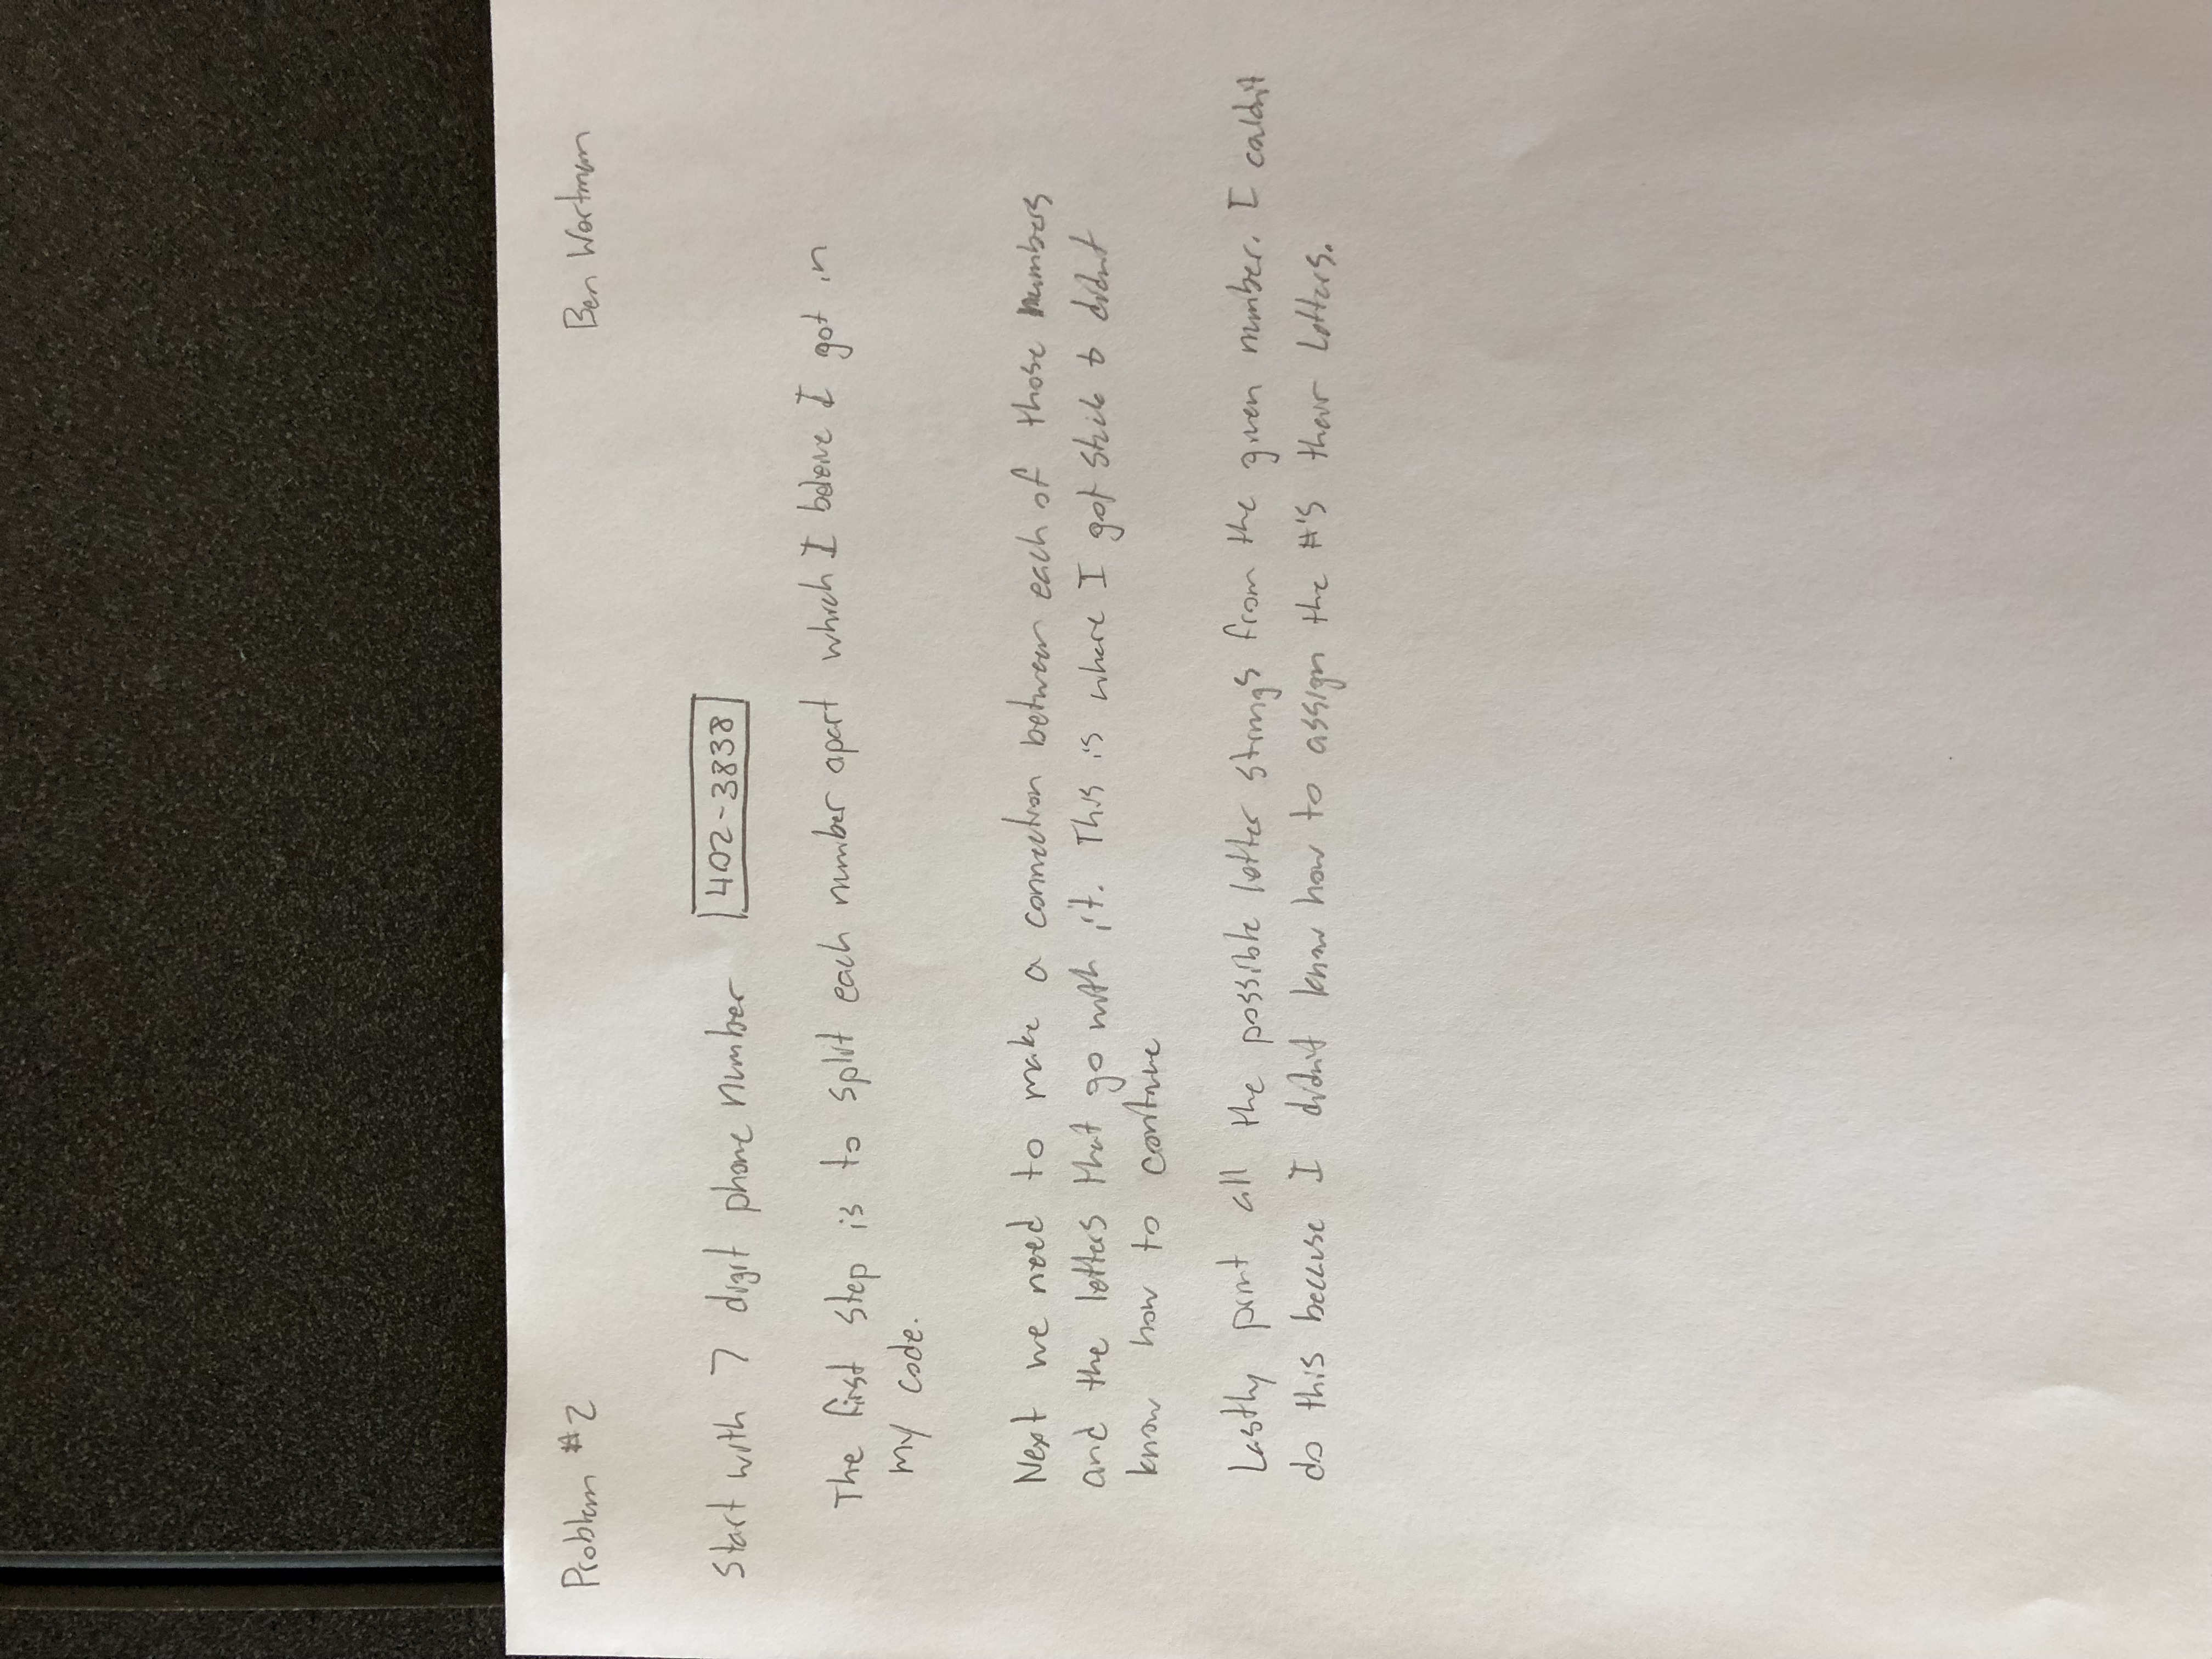 Problem #2
Ben Wortman
Start with 7 digit phone number 402-3838
The first step is to split each number apart which I beleive I got in
my code.
Next we need to make a connection between each of those numbers
and the letters that go with it. This is where I got stuck & didnt
know how to continue
Lastly print all the possible letter strings from the given number. I couldn't
do this because I didn't know how to assign the #'s their letters.